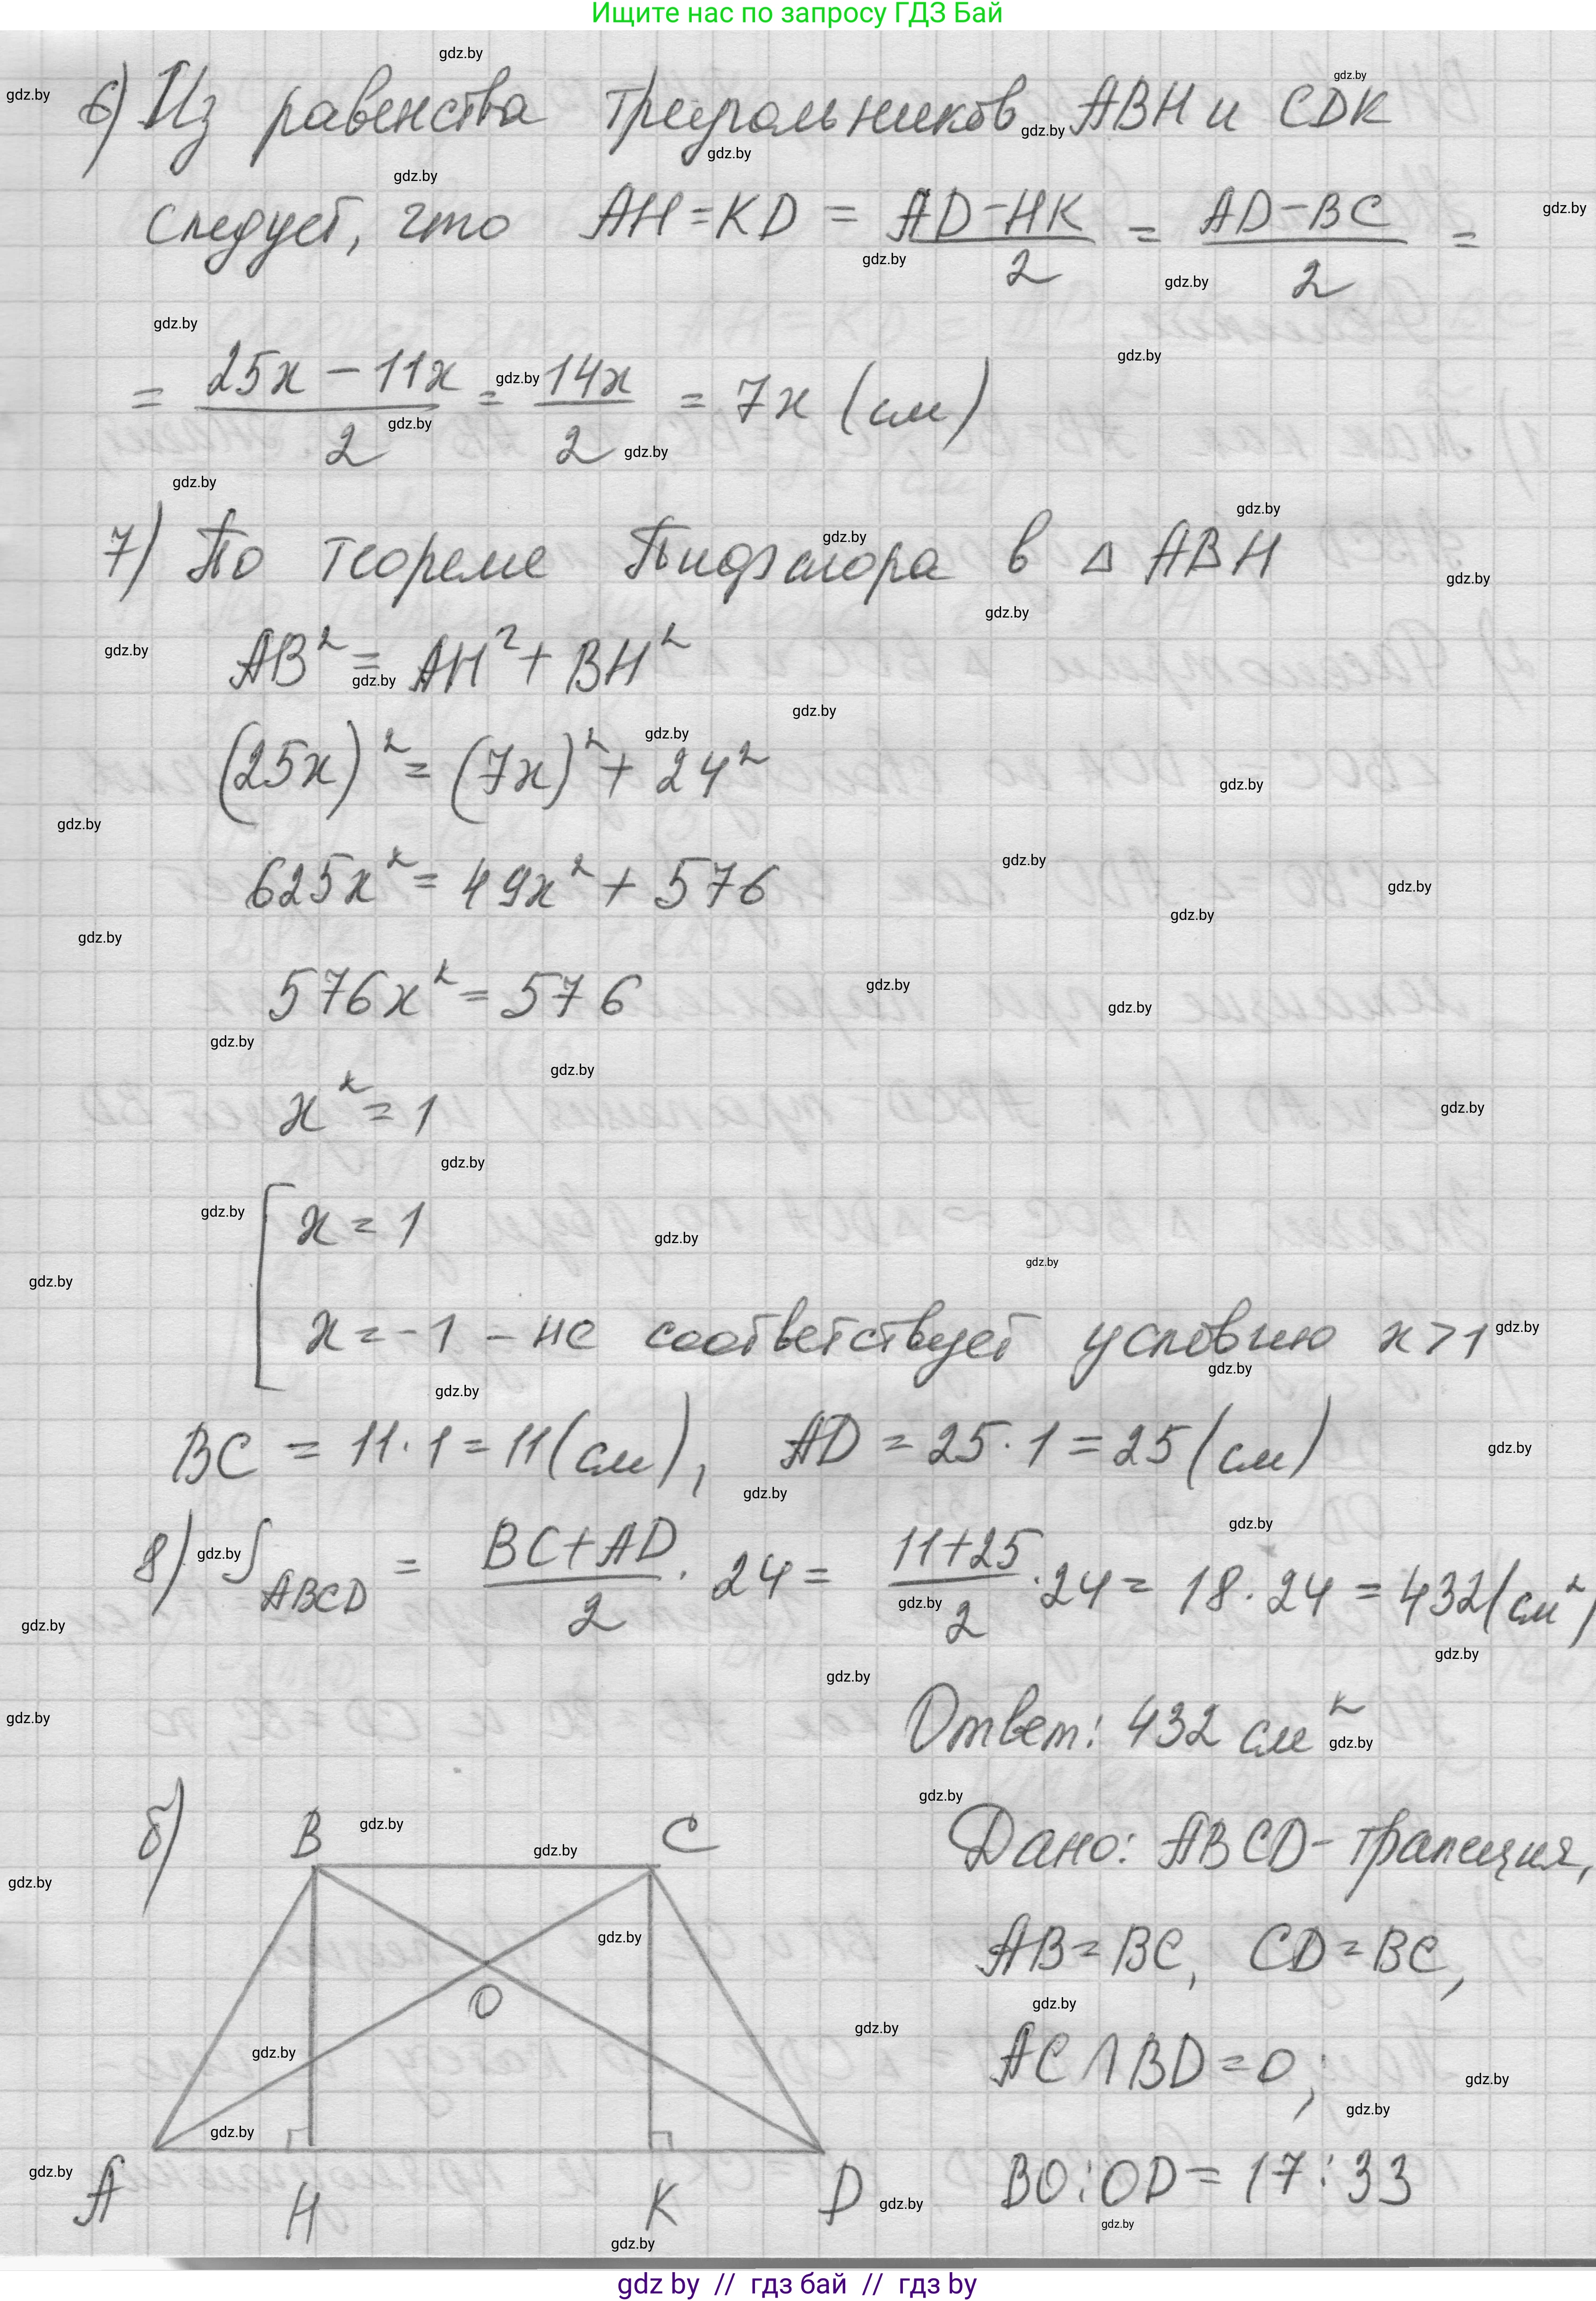 Ищите нас по запросу ГДЗ Бай
6) Из равенства треугольников ABH и CDK
следует, что AH = KD = (AD-HK)/2 = (AD-BC)/2 =
= (25x - 11x)/2 = 14x/2 = 7x (см)
7) По теореме Пифагора в △ ABH
AB² = AH² + BH²
(25x)² = (7x)² + 24²
625x² = 49x² + 576
576x² = 576
x² = 1
[ x = 1
x = -1 - не соответствует условию x > 1
BC = 11·1 = 11 (см), AD = 25·1 = 25 (см)
8) S ABCD = (BC+AD)/2 · 24 = (11+25)/2 · 24 = 18·24 = 432 (см²)
Ответ: 432 см²
б)
B C
O
A H K D
Дано: ABCD - трапеция,
AB = BC, CD = BC,
AC ∩ BD = O;
BO : OD = 17 : 33
gdz by // гдз бай // гдз by